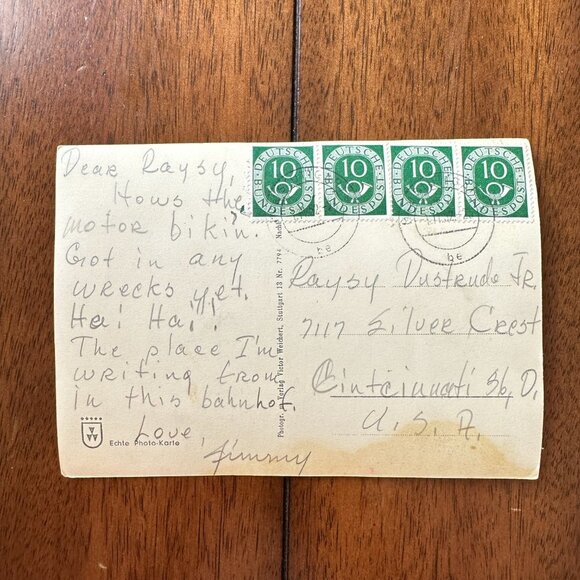 Dear Raysy,
Hows the
motor bikin.
Got in any
wrecks yet.
Ha! Ha!
The place I'm
writing from
in this bahnhof.
Love,
Jimmy
Echte Photo-Karte
Photogr. u. Verlag Victor Weichert, Stuttgart 13 Nr. 7794
10
DEUTSCHE
BUNDESPOST
10
DEUTSCHE
BUNDESPOST
10
DEUTSCHE
BUNDESPOST
10
DEUTSCHE
BUNDESPOST
be
be
Raysy Dustrude Jr.
7117 Silver Crest
Cintcinnati 36, O.
U. S. A.